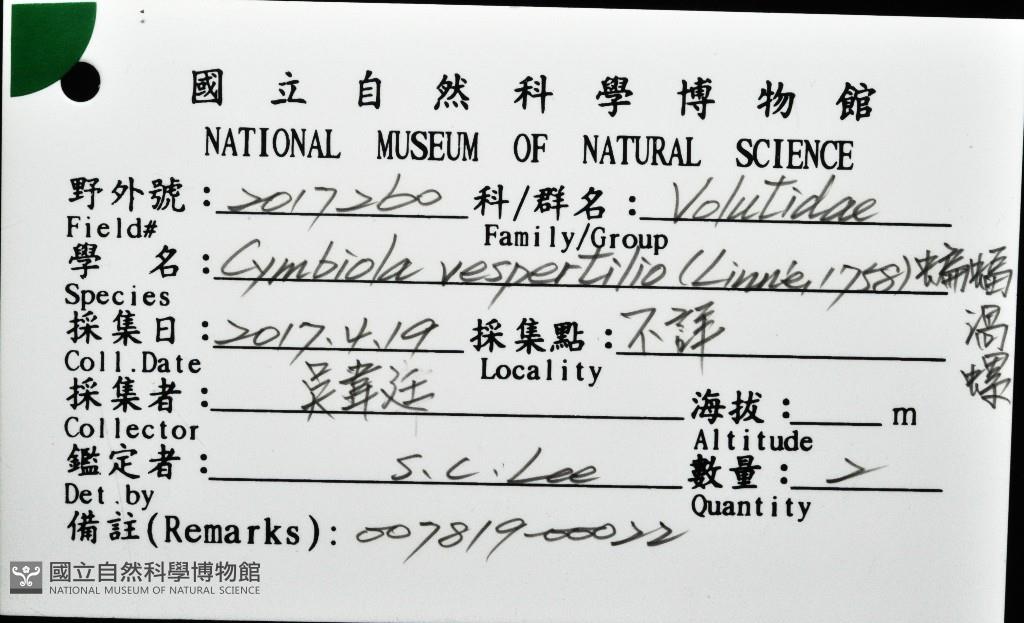 國立自然科學博物館
NATIONAL MUSEUM OF NATURAL SCIENCE
野外號：2017260 科/群名：Volutidae
Field# Family/Group
學 名：Cymbiola vespertilio (Linné, 1758) 蝙蝠渦螺
Species
採集日：2017.4.19 採集點：不詳
Coll.Date Locality
採集者：吳韋廷 海拔：____m
Collector Altitude
鑑定者：S.C.Lee 數量：2
Det.by Quantity
備註(Remarks)：007819-00022
國立自然科學博物館
NATIONAL MUSEUM OF NATURAL SCIENCE